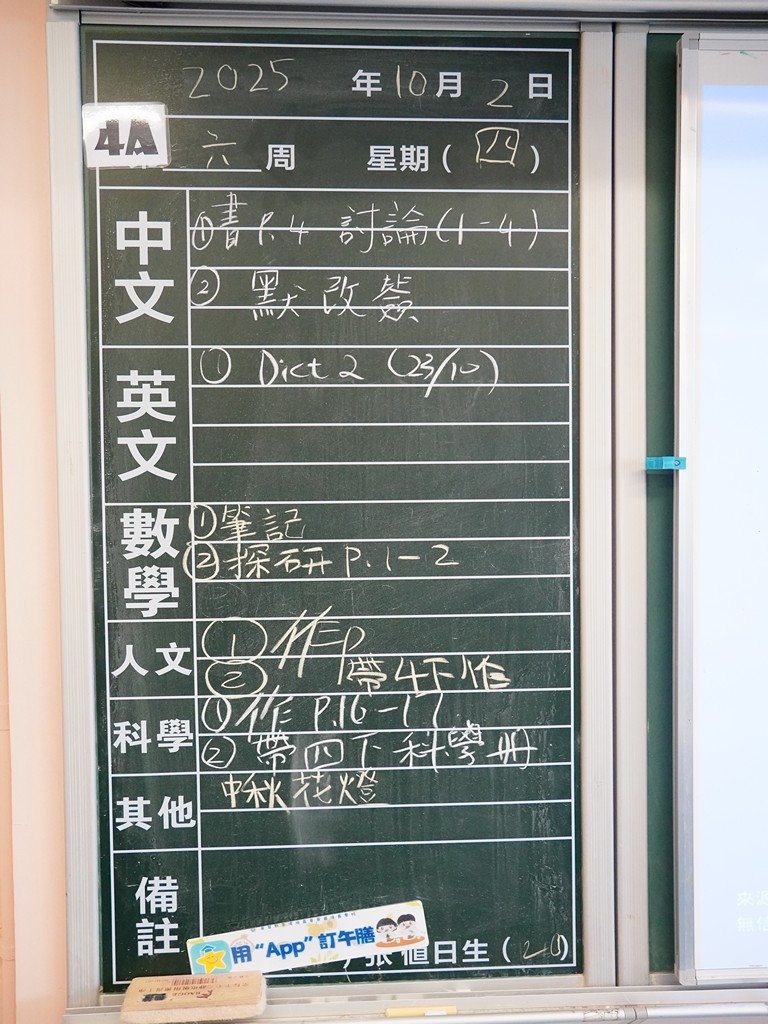 2025 年 10 月 2 日
4A
六 周 星期 ( 四 )
中文
① 書 P.4 討論 (1-4)
② 默改簽
英文
① Dict 2 (23/10)
數學
① 筆記
② 探研 P.1-2
人文
① 作 P
② 帶 4下 作
科學
① 作 P.16-17
② 帶四下科學冊
其他
中秋花燈
備註
用 "App" 訂午膳
張 值日生 ( )